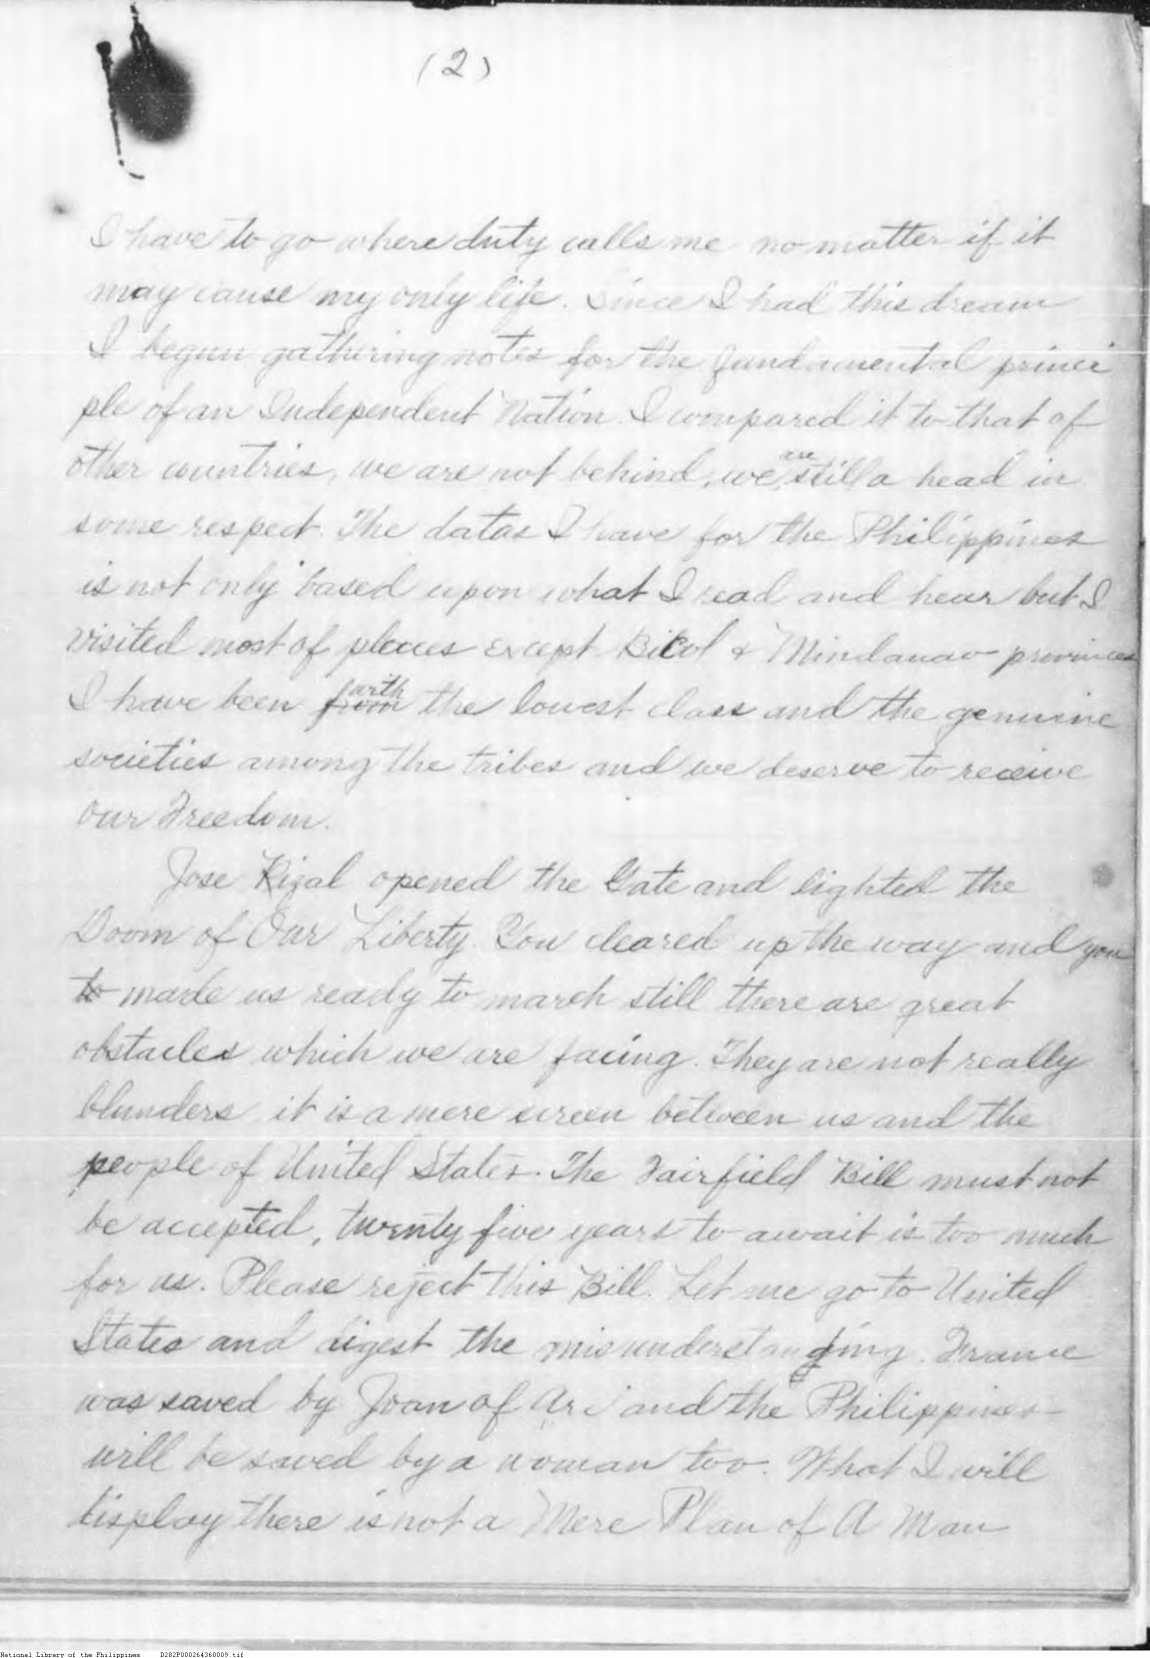 (2)
I have to go where duty calls me no matter if it
may cause my only life. Since I had this dream
I begun gathering notes for the fundamental princi
ple of an Independent Nation. I compared it to that of
other countries, we are not behind, we are still a head in
some respect. The datas I have for the Philippines
is not only based upon what I read and hear but I
visited most of places except Bicol & Mindanao provinces
I have been with the lowest class and the genuine
societies among the tribes and we deserve to receive
our Freedom.
Jose Rizal opened the Gate and lighted the
Doom of Our Liberty. You cleared up the way and you
to made us ready to march still there are great
obstacles which we are facing. They are not really
blunders it is a mere screen between us and the
people of United States. The Fairfield Bill must not
be accepted, twenty five years to await is too much
for us. Please reject this Bill. Let me go to United
States and digest the misunderstanding. France
was saved by Joan of Arc and the Philippines
will be saved by a woman too. What I will
display there is not a Mere Plan of A Man
National Library of the Philippines D282P000264360009.tif